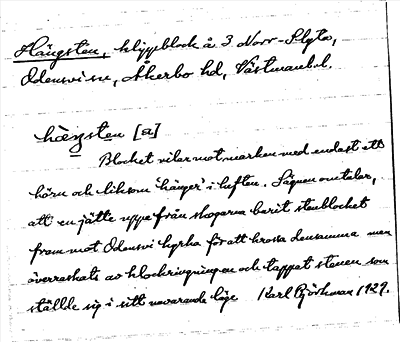 Hängsten, klippblock å 3 Norr-Slyta,
Odensvi sn, Åkerbo hd, Västmanl.
hæŋsten [a]
Blocket vilar mot marken med endast ett
hörn och liksom 'hänger' i luften. Sägnen omtalar,
att en jätte uppe från skogarna burit stenblocket
fram mot Odensvi kyrka för att krossa densamma men
överraskats av klockringningen och tappat stenen som
ställde sig i sitt nuvarande läge. Karl Björkman 1929.